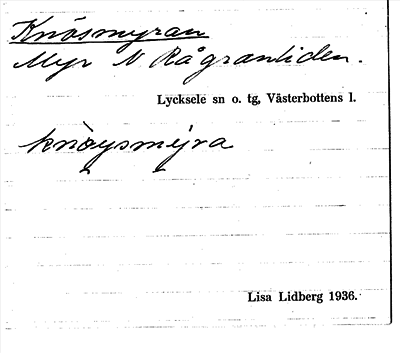 Knösmyran
Myr N Rågranliden.
Lycksele sn o. tg, Västerbottens l.
knøysmyra
Lisa Lidberg 1936.